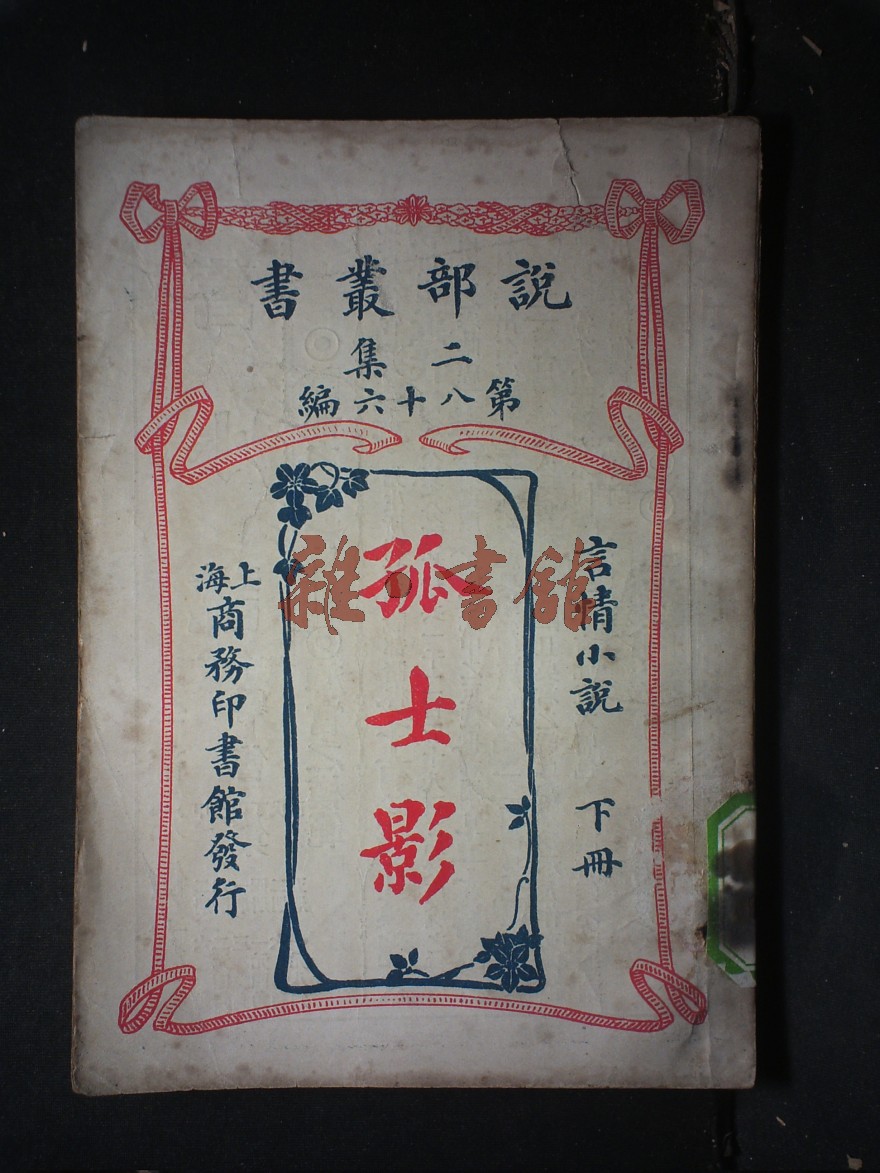 說部叢書
二集
第八十六編
言情小說 下冊
孤士影
上海商務印書館發行
雜·書館